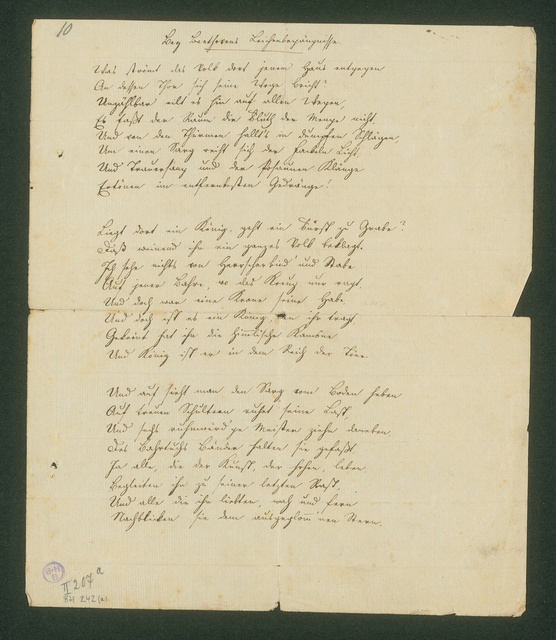 10
Bey Beethovens Leichenbegängnisse.
Was strömt das Volk dort jenem Haus entgegen
An dessen Thor sich seine Woge bricht?
Unzählbar eilt es hin auf allen Wegen,
Es faßt der Raum die Fluth der Menge nicht,
Und von den Thürmen hallt's in dumpfen Schlägen,
Um einen Sarg reiht sich der Fackeln Licht,
Und Trauersang und der Posaunen Klänge
Ertönen im entferntesten Gedränge!
Liegt dort ein König, geht ein Fürst zu Grabe?
Daß weinend ihn ein ganzes Volk beklagt.
Ich sehe nichts von Herrscherbind' und Stabe
Auf jener Bahre, wo das Kreuz nur ragt,
Und doch war eine Krone seine Habe
Und doch ist es ein König, den ihr tragt,
Gekrönt hat ihn die himmlische Kamöne
Und König ist er in dem Reich der Töne.
Und auf sieht man den Sarg vom Boden heben
Auf treuen Schultern ruhet seine Last,
Und sechs ruhmwürd'ge Meister ziehn daneben
Des Bahrtuchs Bänder halten sie gefaßt
Ja alle, die der Kunst, der hohen, leben,
Begleiten ihn zu seiner letzten Rast,
Und alle die ihn liebten, nah und fern
Nachblicken sie dem ausgeglommnen Stern.
II 207 a
BH 242 (a)